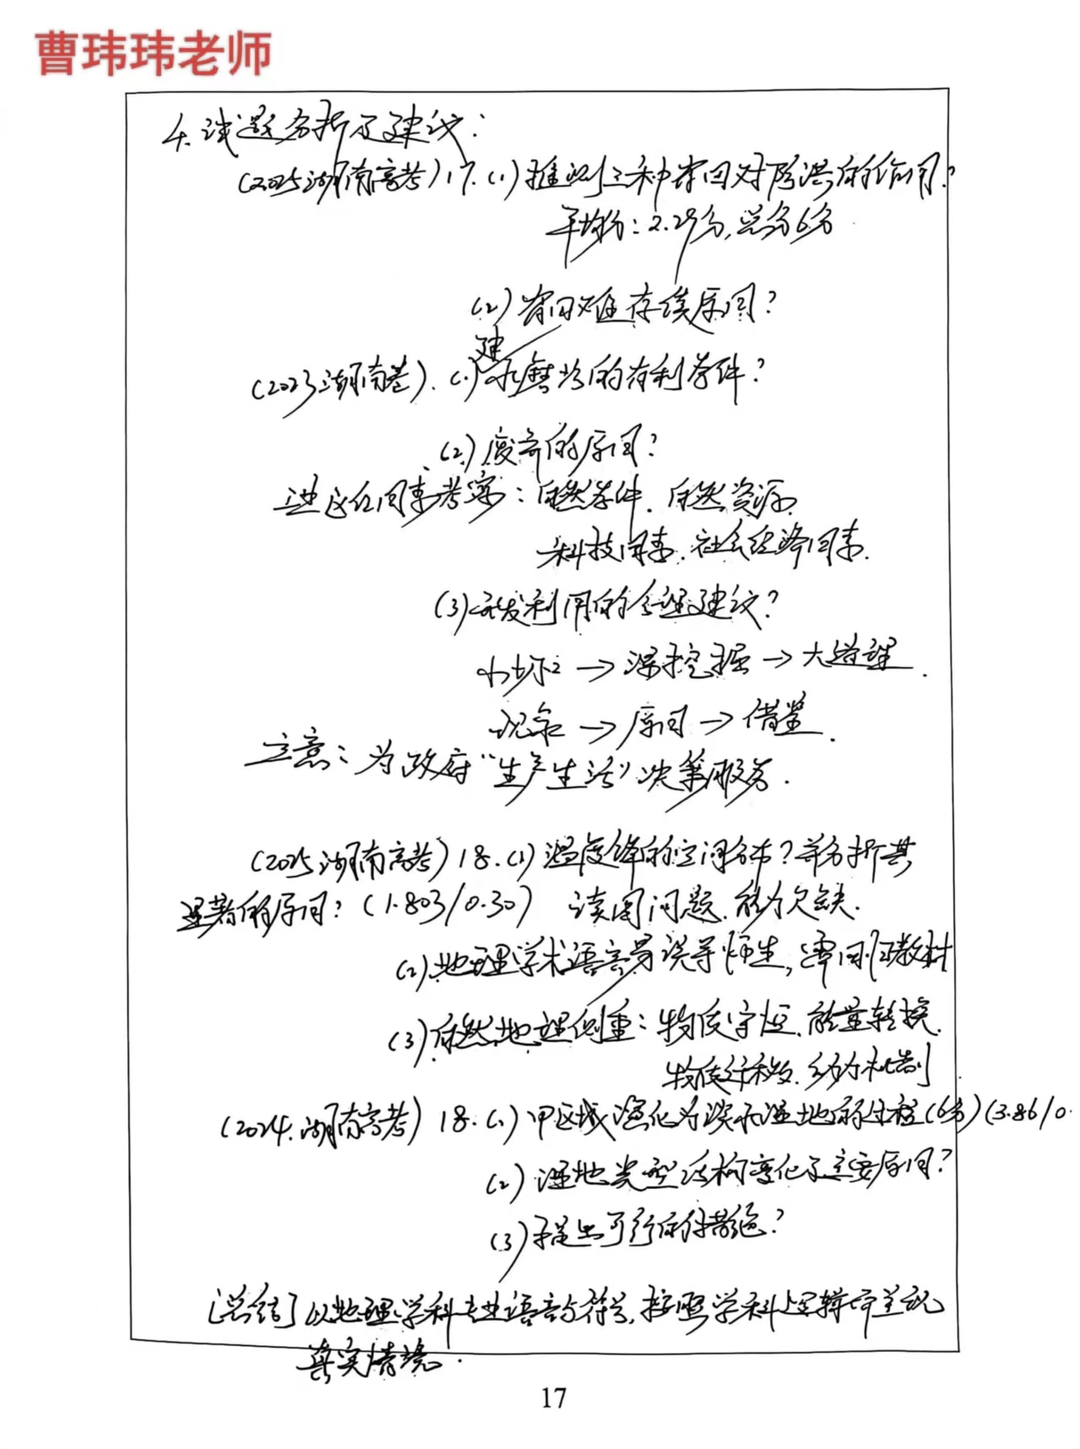 曹玮玮老师
4.试题分析及建议:
(2025湖南高考)17.(1)推测三种常田对防洪的作用?
平均分:2.29分,总分6分
(2)常田难存续原因?
建
(2023湖南卷).(1)水磨坊的有利条件?
(2)废弃的原因?
进区位因素考察:自然条件.自然资源.
科技因素.社会经济因素.
(3)开发利用的合理建议?
小切口→深挖掘→大道理.
现象→原因→借鉴.
注意:为政府“生产生活”决策服务.
(2025湖南高考)18.(1)温度锋的空间分布?并分析其
显著的原因?(1.803/0.30) 读图问题.能力欠缺.
(2)地理学术语言易误导师生,要回归教材
(3)自然地理侧重:物质守恒.能量转换.
物质迁移.动力机制
(2024.湖南高考)18.(1)甲区域演化为淡水湿地的过程(6分)(3.86/0.
(2)湿地类型结构变化及主要原因?
(3)提出可行的措施?
[总结]以地理学科专业语言与符号,按照学科逻辑
真实情境.
17